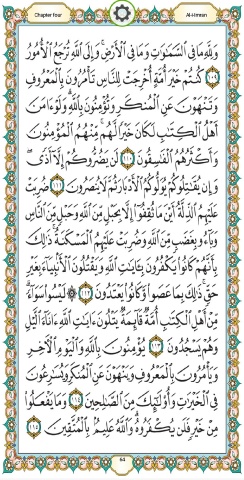 Chapter four
Al-Imran
وَلِلَّهِ مَا فِي السَّمَاوَاتِ وَمَا فِي الْأَرْضِ وَإِلَى اللَّهِ تُرْجَعُ الْأُمُورُ
۝١٠٩ كُنتُمْ خَيْرَ أُمَّةٍ أُخْرِجَتْ لِلنَّاسِ تَأْمُرُونَ بِالْمَعْرُوفِ
وَتَنْهَوْنَ عَنِ الْمُنكَرِ وَتُؤْمِنُونَ بِاللَّهِ وَلَوْ ءَامَنَ
أَهْلُ الْكِتَابِ لَكَانَ خَيْرًا لَّهُم مِّنْهُمُ الْمُؤْمِنُونَ
وَأَكْثَرُهُمُ الْفَاسِقُونَ ۝١١٠ لَن يَضُرُّوكُمْ إِلَّا أَذًى
وَإِن يُقَاتِلُوكُمْ يُوَلُّوكُمُ الْأَدْبَارَ ثُمَّ لَا يُنصَرُونَ ۝١١١ ضُرِبَتْ
عَلَيْهِمُ الذِّلَّةُ أَيْنَ مَا ثُقِفُوا إِلَّا بِحَبْلٍ مِّنَ اللَّهِ وَحَبْلٍ مِّنَ النَّاسِ
وَبَاءُو بِغَضَبٍ مِّنَ اللَّهِ وَضُرِبَتْ عَلَيْهِمُ الْمَسْكَنَةُ ذَٰلِكَ
بِأَنَّهُمْ كَانُوا يَكْفُرُونَ بِآيَاتِ اللَّهِ وَيَقْتُلُونَ الْأَنبِيَاءَ بِغَيْرِ
حَقٍّ ذَٰلِكَ بِمَا عَصَوا وَّكَانُوا يَعْتَدُونَ ۝١١٢ لَيْسُوا سَوَاءً
مِّنْ أَهْلِ الْكِتَابِ أُمَّةٌ قَائِمَةٌ يَتْلُونَ ءَايَاتِ اللَّهِ ءَانَاءَ اللَّيْلِ
وَهُمْ يَسْجُدُونَ ۝١١٣ يُؤْمِنُونَ بِاللَّهِ وَالْيَوْمِ الْآخِرِ
وَيَأْمُرُونَ بِالْمَعْرُوفِ وَيَنْهَوْنَ عَنِ الْمُنكَرِ وَيُسَارِعُونَ
فِي الْخَيْرَاتِ وَأُولَٰئِكَ مِنَ الصَّالِحِينَ ۝١١٤ وَمَا يَفْعَلُوا
مِنْ خَيْرٍ فَلَن يُكْفَرُوهُ وَاللَّهُ عَلِيمٌ بِالْمُتَّقِينَ ۝١١٥
64